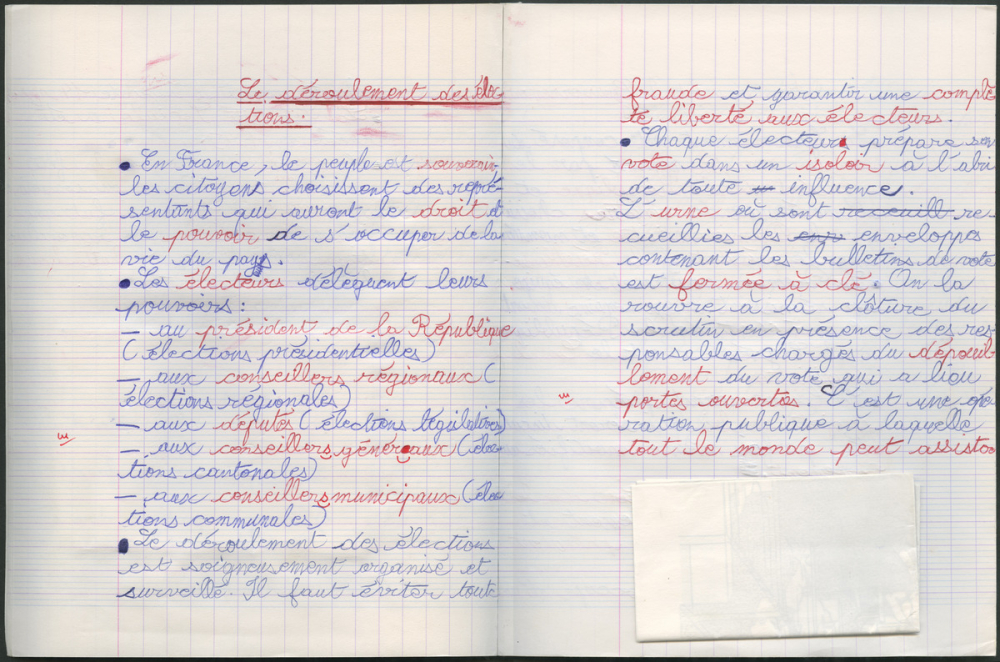 Le déroulement des élec
tions.
• En France, le peuple est souverain,
les citoyens choisissent des repré-
sentants qui auront le droit et
le pouvoir de s'occuper de la
vie du pays.
• Les électeurs délèguent leurs
pouvoirs :
— au président de la République
(élections présidentielles)
— aux conseillers régionaux (
élections régionales)
— aux députés (élections législatives)
— aux conseillers généraux (élec
tions cantonales)
— aux conseillers municipaux (élec
tions communales)
• Le déroulement des élections
est soigneusement organisé et
surveillé. Il faut éviter toute
fraude et garantir une complè
te liberté aux électeurs.
• Chaque électeur prépare son
vote dans un isoloir à l'abri
de toute influence.
L'urne où sont recueill re-
cueillies les env enveloppes
contenant les bulletins de vote
est fermée à clé. On la
rouvre à la clôture du
scrutin en présence des res
ponsables chargés du dépouil
lement du vote qui a lieu
portes ouvertes. C'est une opé
ration publique à laquelle
tout le monde peut assister